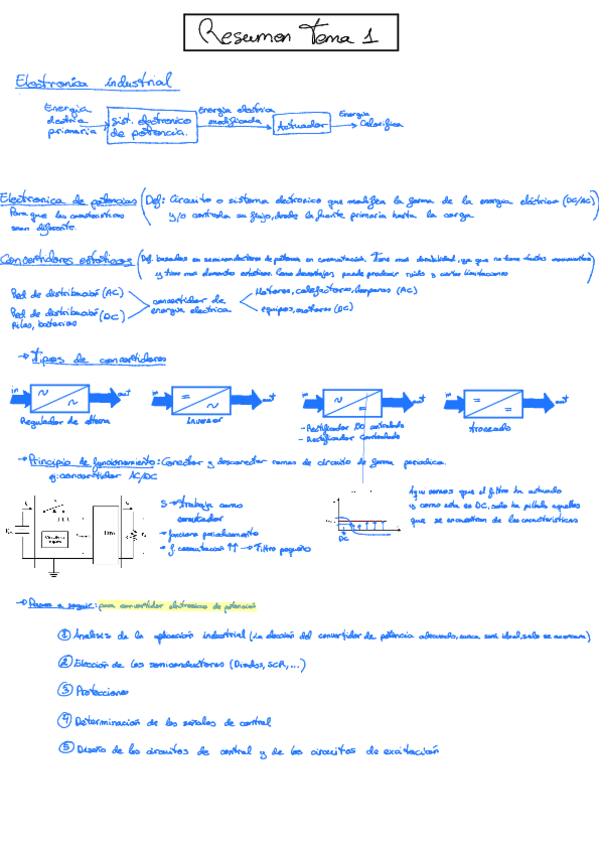 Resumen Tema 1
Electronica industrial
Energia electria primaria
Sist. electronico de potencia.
Energia electrica modificada
Actuador
Energia Calorifica
Electronica de potencias (Def: Circuito o sistema electronico que modifica la forma de la energia eléctrica (DC/AC)
Para que las caracteristicas sean diferente
y/o controla su flujo, desde la fuente primaria hasta la carga
Convertidores estáticos (Def. basados en semiconductores de potencia en conmutación. Tiene mas durabilidad, ya que no tiene
y tiene mas elementos estaticos. Como desventajas puede producir ruido y ciertas limitaciones
Red de distribución (AC)
Red de distribución (DC)
Pilas, baterias
convertidor de energia electrica
Motores, calefactores, lamparas (AC)
equipos, motores (DC)
→ Tipos de convertidores
in out
in out
in out
in out
Regulador de alterna
Inversor
- Rectificador NO controlado
- Rectificador Controlado
troceado
→ Principio de funcionamiento: Conectar y desconectar ramas de circuito de forma periodica.
ej: convertidor AC/DC
S → trabaja como conmutador
→ funciona periodicamente
→ f. conmutación ↑↑ → Filtro pequeño
DC
Aqui vemos que el filtro ha actuado
y como esta en DC, solo ha pillado aquellos
que se encuentran de las caracteristicas
→ Pasos a seguir: para convertidor electronicos de potencias
① Analisis de la aplicacion industrial (La elección del convertidor de potencia adecuado, nunca será ideal, solo se aproxima)
② Elección de los semiconductores (Diodos, SCR, ...)
③ Protecciones
④ Determinación de las señales de control
⑤ Diseño de los circuitos de control y de los circuitos de excitación